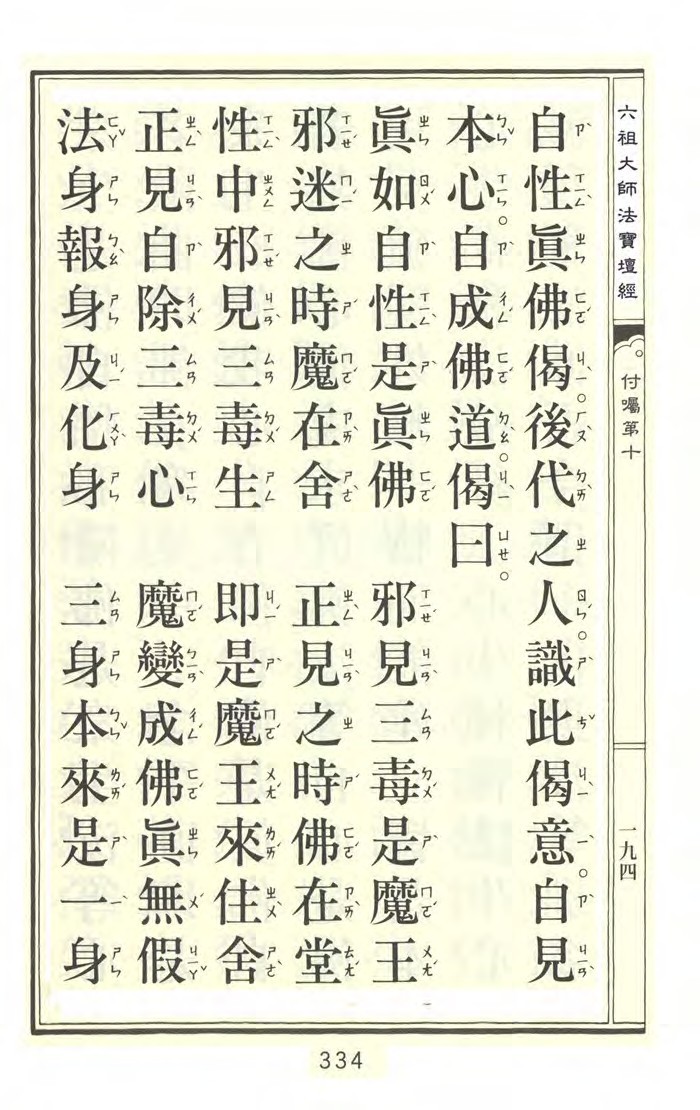 六祖大師法寶壇經
付囑第十
一九四
自性眞佛偈。後代之人。識此偈意。自見
本心。自成佛道。偈曰。
眞如自性是眞佛　邪見三毒是魔王
邪迷之時魔在舍　正見之時佛在堂
性中邪見三毒生　即是魔王來住舍
正見自除三毒心　魔變成佛眞無假
法身報身及化身　三身本來是一身
334